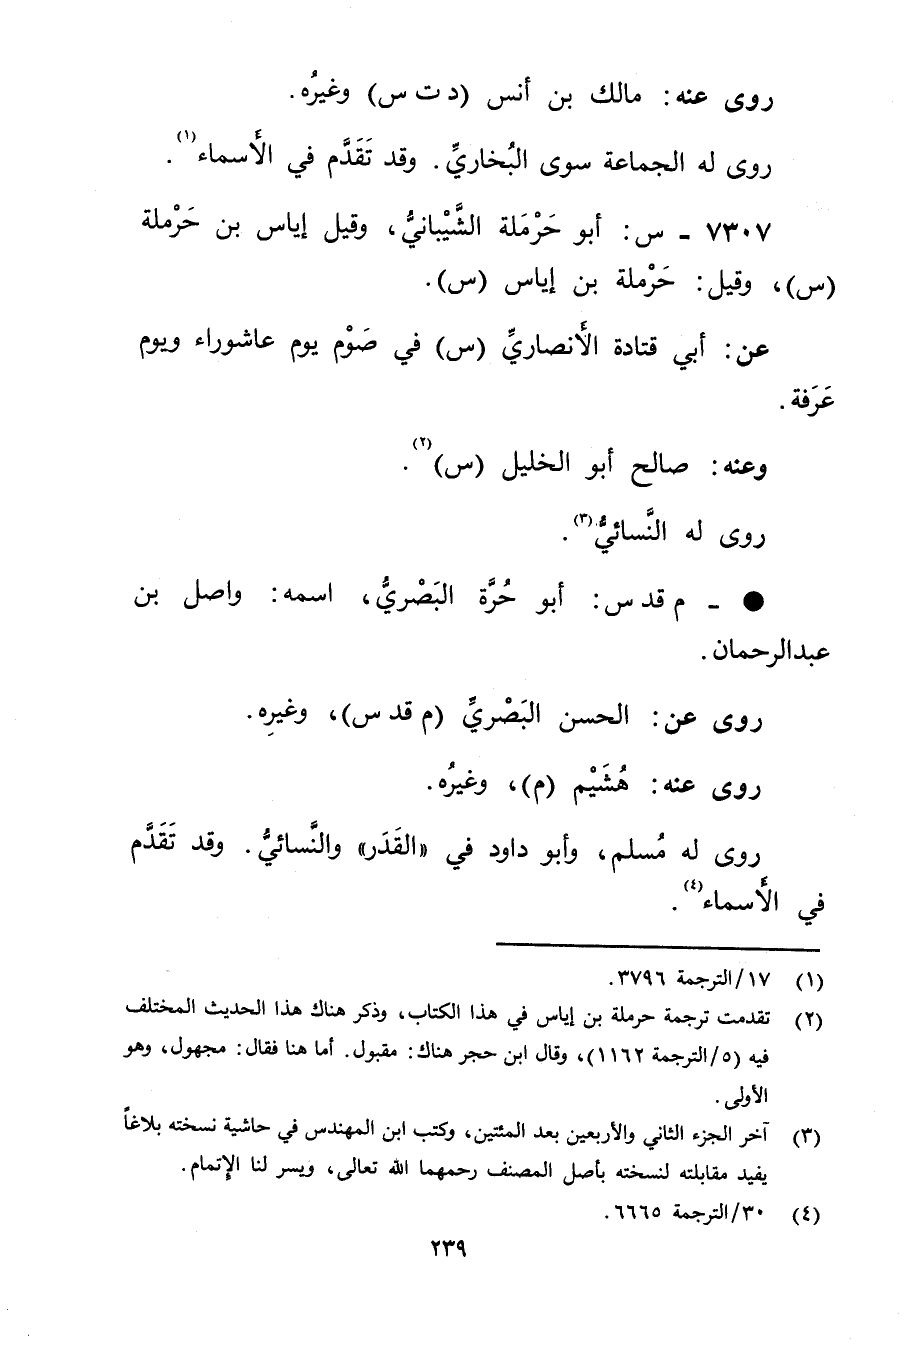 روى عنه: مالك بن أنس (د ت س) وغيرُه.
روى له الجماعة سوى البُخاريِّ. وقد تَقَدَّم في الأَسماء(١).
٧٣٠٧ - س: أبو حَرْمَلة الشَّيْبانيُّ، وقيل إياس بن حَرْملة
(س)، وقيل: حَرْملة بن إياس (س).
عن: أبي قتادة الأَنصاريِّ (س) في صَوْم يوم عاشوراء ويوم
عَرَفة.
وعنه: صالح أبو الخليل (س)(٢).
روى له النَّسائيُّ(٣).
● - م قد س: أبو حُرَّة البَصْريُّ، اسمه: واصل بن
عبدالرحمان.
روى عن: الحسن البَصْريِّ (م قد س)، وغيرِه.
روى عنه: هُشَيْم (م)، وغيرُه.
روى له مُسلم، وأبو داود في «القَدَر» والنَّسائيُّ. وقد تَقَدَّم
في الأَسماء(٤).
(١) ١٧/الترجمة ٣٧٩٦.
(٢) تقدمت ترجمة حرملة بن إياس في هذا الكتاب، وذكر هناك هذا الحديث المختلف
فيه (٥/الترجمة ١١٦٢)، وقال ابن حجر هناك: مقبول. أما هنا فقال: مجهول، وهو
الأولى.
(٣) آخر الجزء الثاني والأربعين بعد المئتين، وكتب ابن المهندس في حاشية نسخته بلاغاً
يفيد مقابلته لنسخته بأصل المصنف رحمهما الله تعالى، ويسر لنا الإتمام.
(٤) ٣٠/الترجمة ٦٦٦٥.
٢٣٩